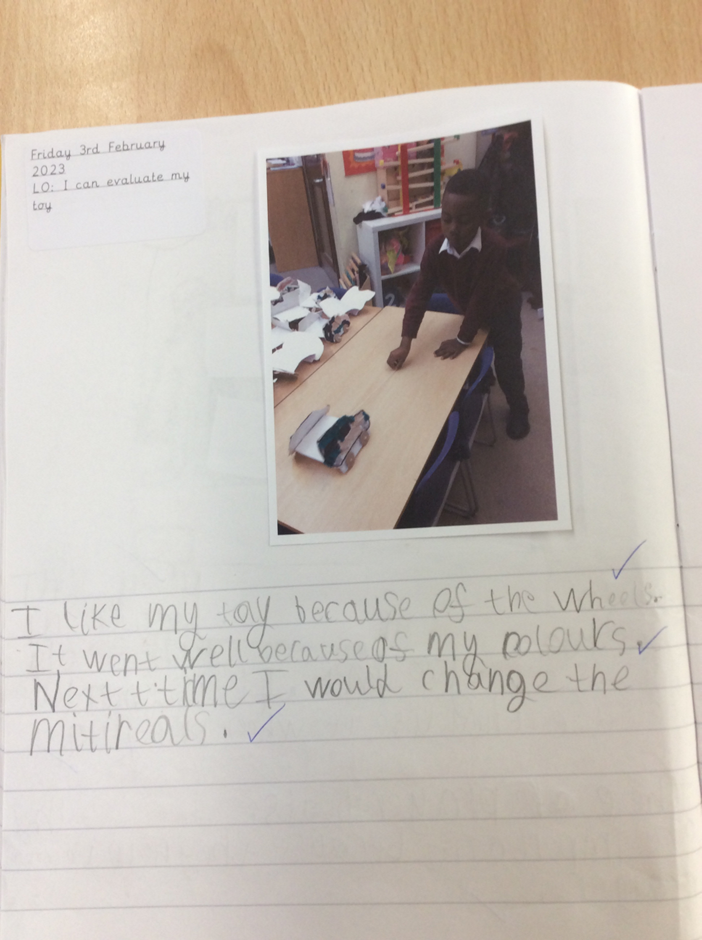 Friday 3rd February
2023
LO: I can evaluate my
toy
I like my toy because of the wheels.
It went well because of my colours.
Next t time I would change the
mitireals.